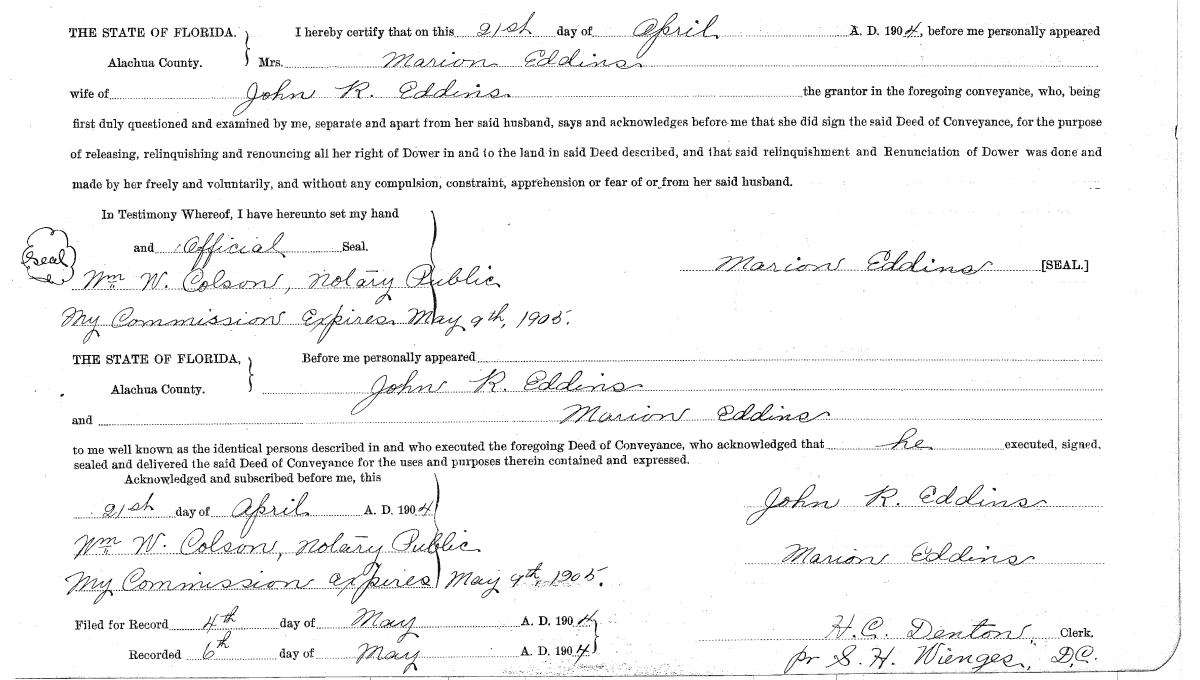 THE STATE OF FLORIDA. I hereby certify that on this 21st day of April A. D. 1904, before me personally appeared
Alachua County. Mrs. Marion Eddins
wife of John R. Eddins the grantor in the foregoing conveyance, who, being
first duly questioned and examined by me, separate and apart from her said husband, says and acknowledges before me that she did sign the said Deed of Conveyance, for the purpose
of releasing, relinquishing and renouncing all her right of Dower in and to the land in said Deed described, and that said relinquishment and Renunciation of Dower was done and
made by her freely and voluntarily, and without any compulsion, constraint, apprehension or fear of or from her said husband.
In Testimony Whereof, I have hereunto set my hand
and Official Seal.
Seal
Marion Eddins [SEAL.]
Wm W. Colson, Notary Public
My Commission Expires May 9th, 1905.
THE STATE OF FLORIDA, Before me personally appeared
Alachua County. John R. Eddins
and Marion Eddins
to me well known as the identical persons described in and who executed the foregoing Deed of Conveyance, who acknowledged that he executed, signed,
sealed and delivered the said Deed of Conveyance for the uses and purposes therein contained and expressed.
Acknowledged and subscribed before me, this
21st day of April A. D. 1904 John R. Eddins
Wm W. Colson, Notary Public Marion Eddins
My Commission expires May 9th, 1905.
Filed for Record 4th day of May A. D. 1904 H. C. Denton, Clerk.
Recorded 6th day of May A. D. 1904 pr S. H. Wienges, D.C.